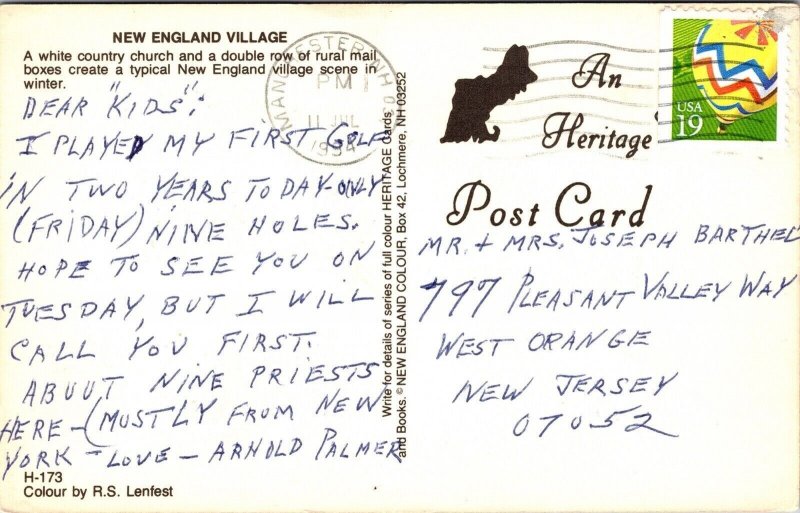 NEW ENGLAND VILLAGE
A white country church and a double row of rural mail
boxes create a typical New England village scene in
winter.
DEAR "KIDS":
I PLAYED MY FIRST GOLF
IN TWO YEARS TODAY-ONLY
(FRIDAY) NINE HOLES.
HOPE TO SEE YOU ON
TUESDAY, BUT I WILL
CALL YOU FIRST.
ABOUT NINE PRIESTS
HERE - (MOSTLY FROM NEW
YORK - LOVE - ARNOLD PALMER
H-173
Colour by R.S. Lenfest
Write for details of series of full colour HERITAGE Cards
and Books. © NEW ENGLAND COLOUR, Box 42, Lochmere, NH 03252
MANCHESTER NH
PM
11 JUL
1994
An
Heritage
Post Card
USA
19
MR. + MRS. JOSEPH BARTHEL
797 PLEASANT VALLEY WAY
WEST ORANGE
NEW JERSEY
07052